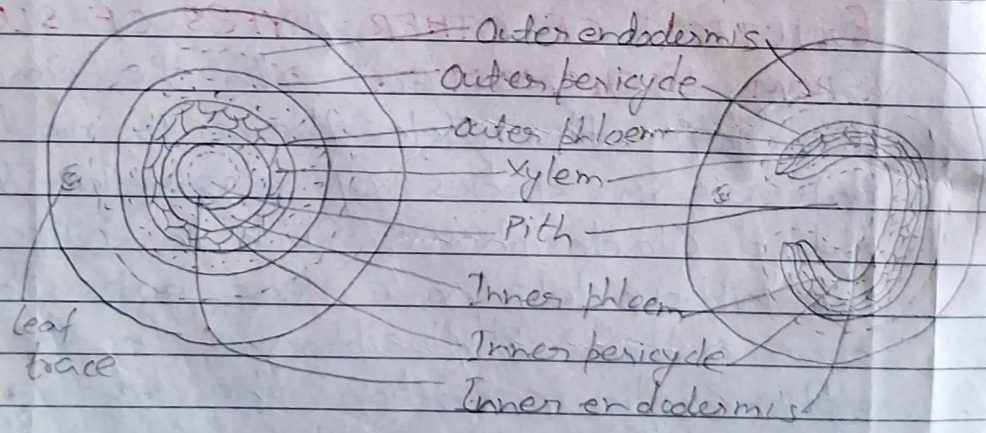 Outer endodermis
Outer pericycle
outer phloem
Xylem
Pith
Inner phloem
Inner pericycle
Inner endodermis
leaf
trace